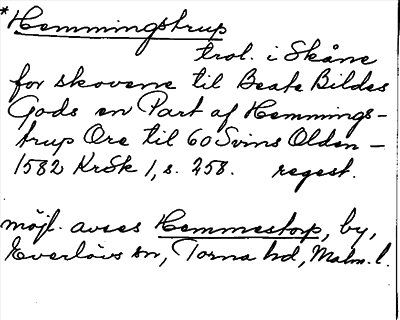 *Hemmingstrup
trol. i Skåne
for skovene til Beate Bildes
Gods en Part af Hemmings-
trup Ore til 60 Svins Olden -
1582 KrSk 1, s. 258. regest.
möjl. avses Hemmestorp, by,
Everlövs sn, Torna hd, Malm. l.